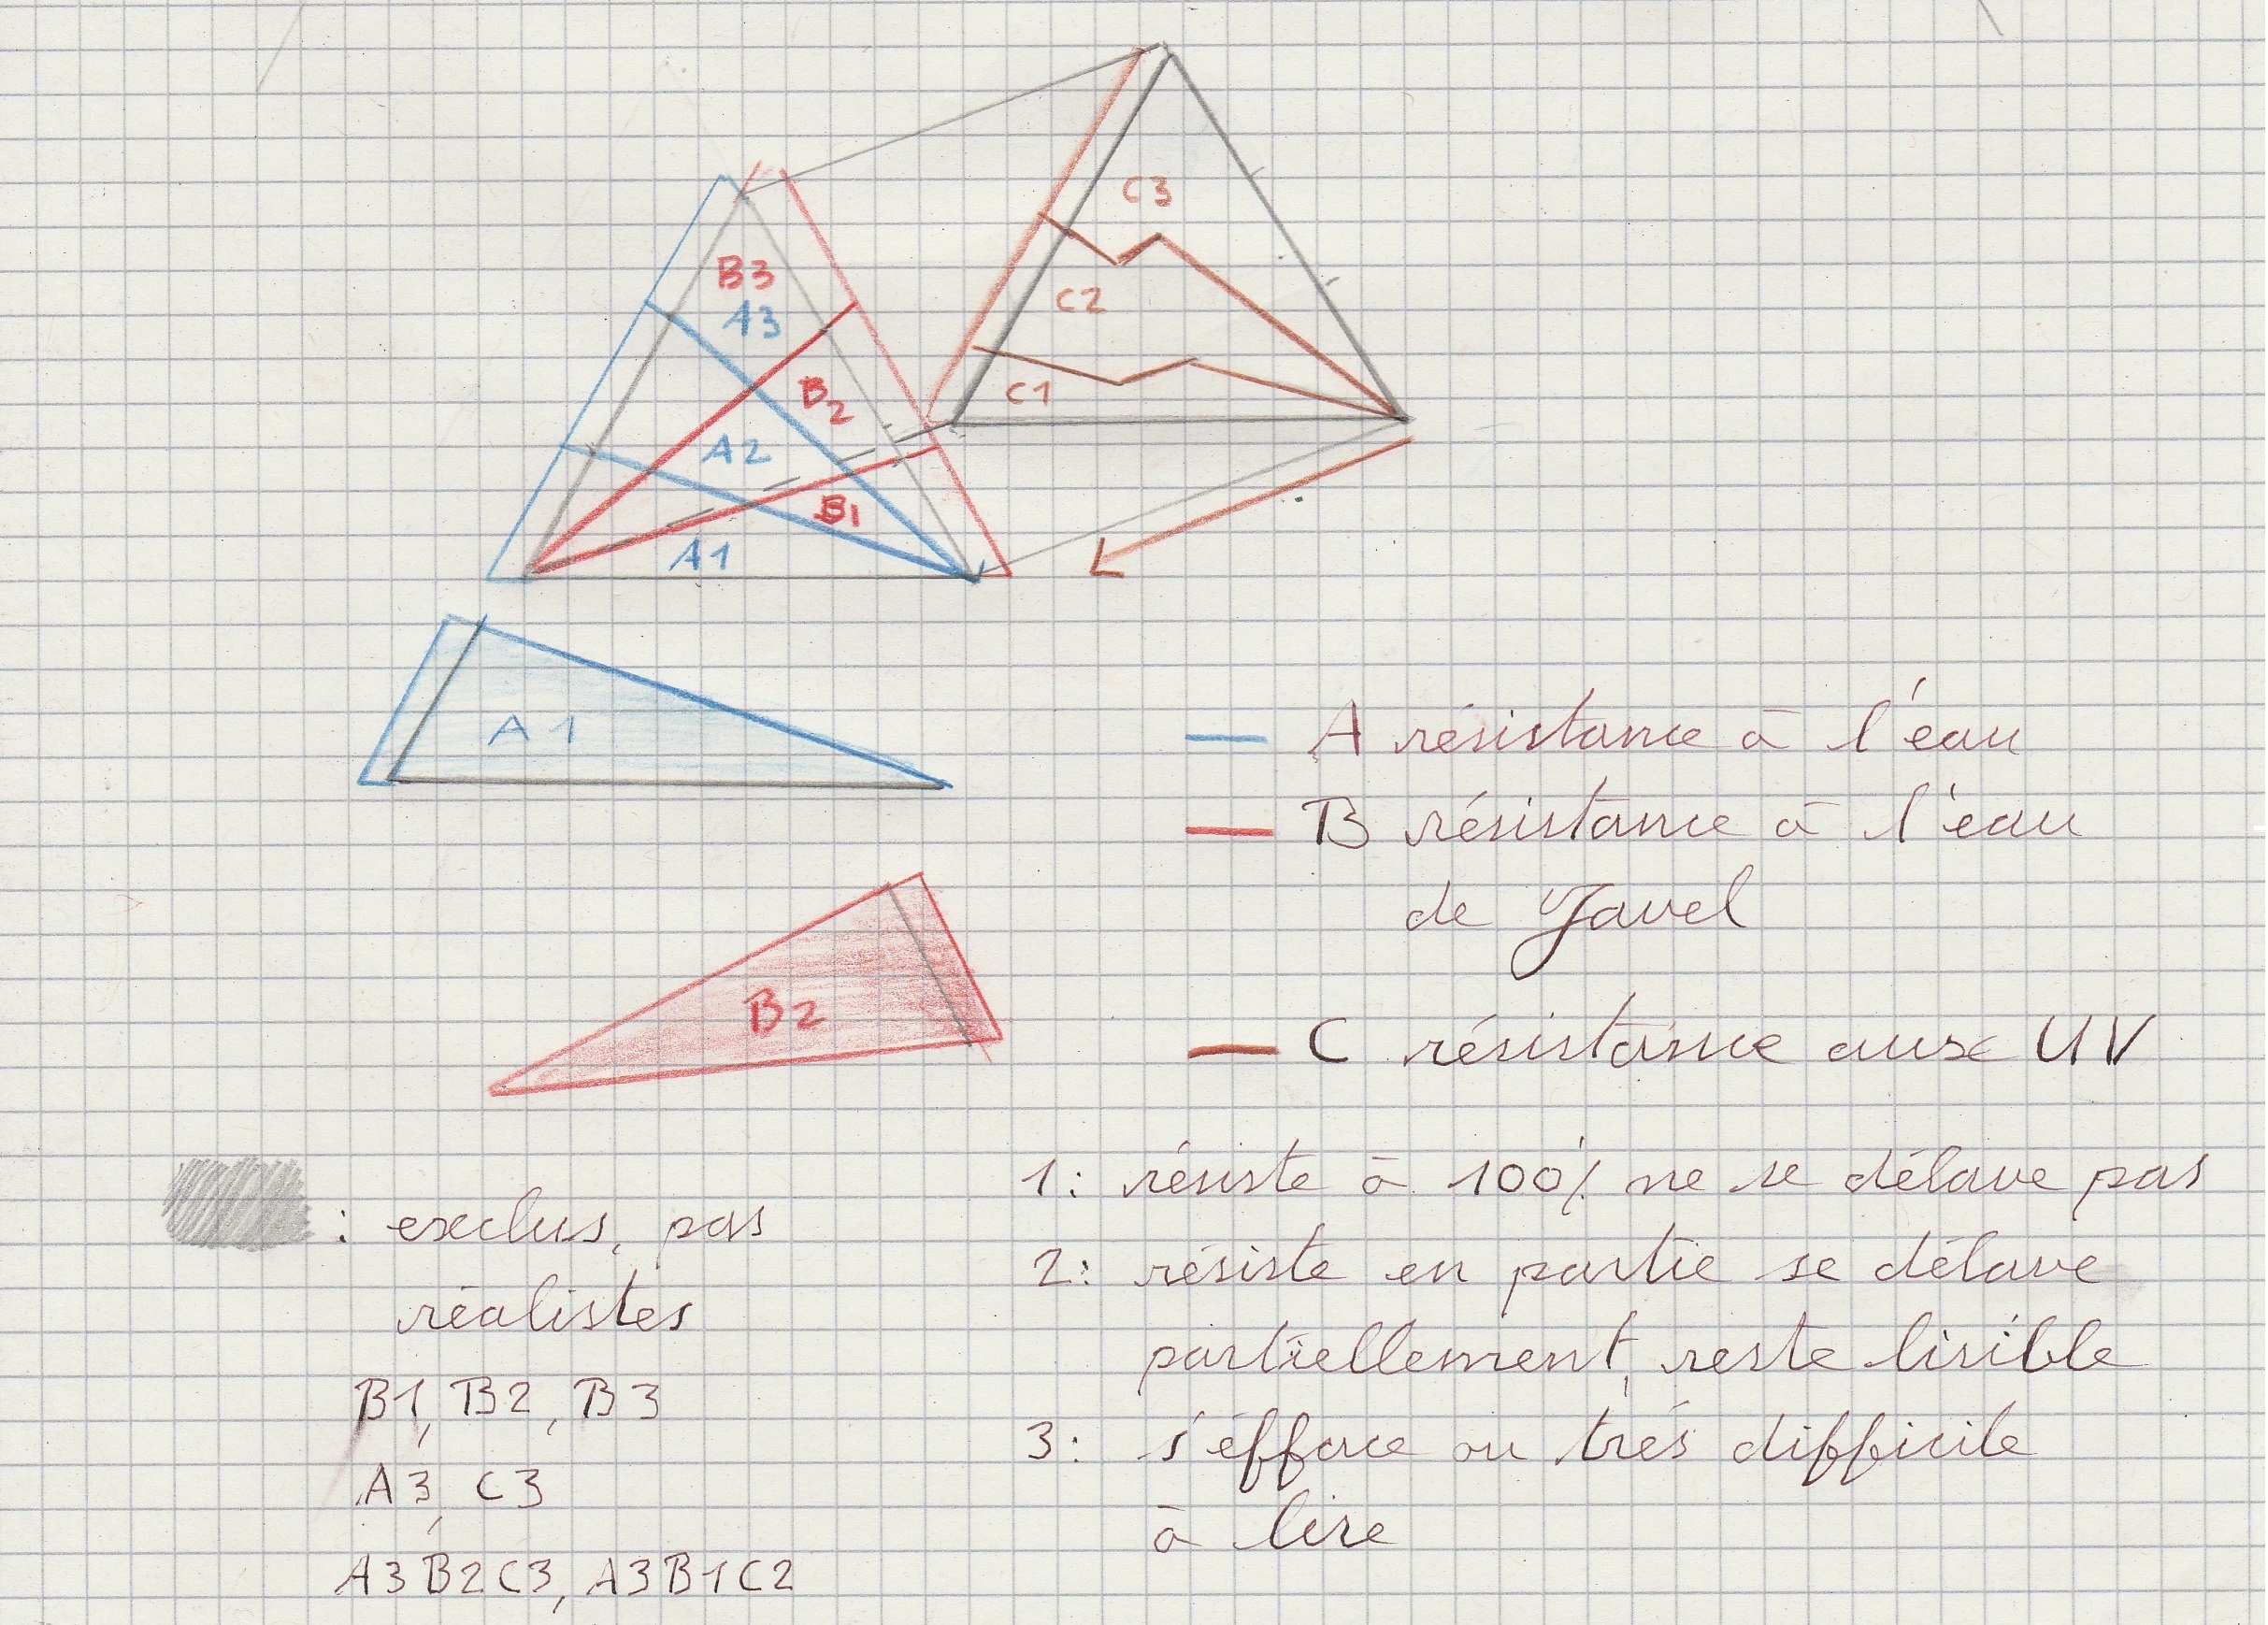 C3
B3
A3
C2
B2
C1
A2
B1
A1
A1
A résistance à l'eau
B résistance à l'eau
de Javel
B2
C résistance aux UV
1: résiste à 100% ne se délave pas
2: résiste en partie se délave
partiellement, reste lisible
3: s'éfface ou trés difficile
à lire
: exclus, pas
réalistes
B1, B2, B3
A3, C3
A3B2C3, A3B1C2